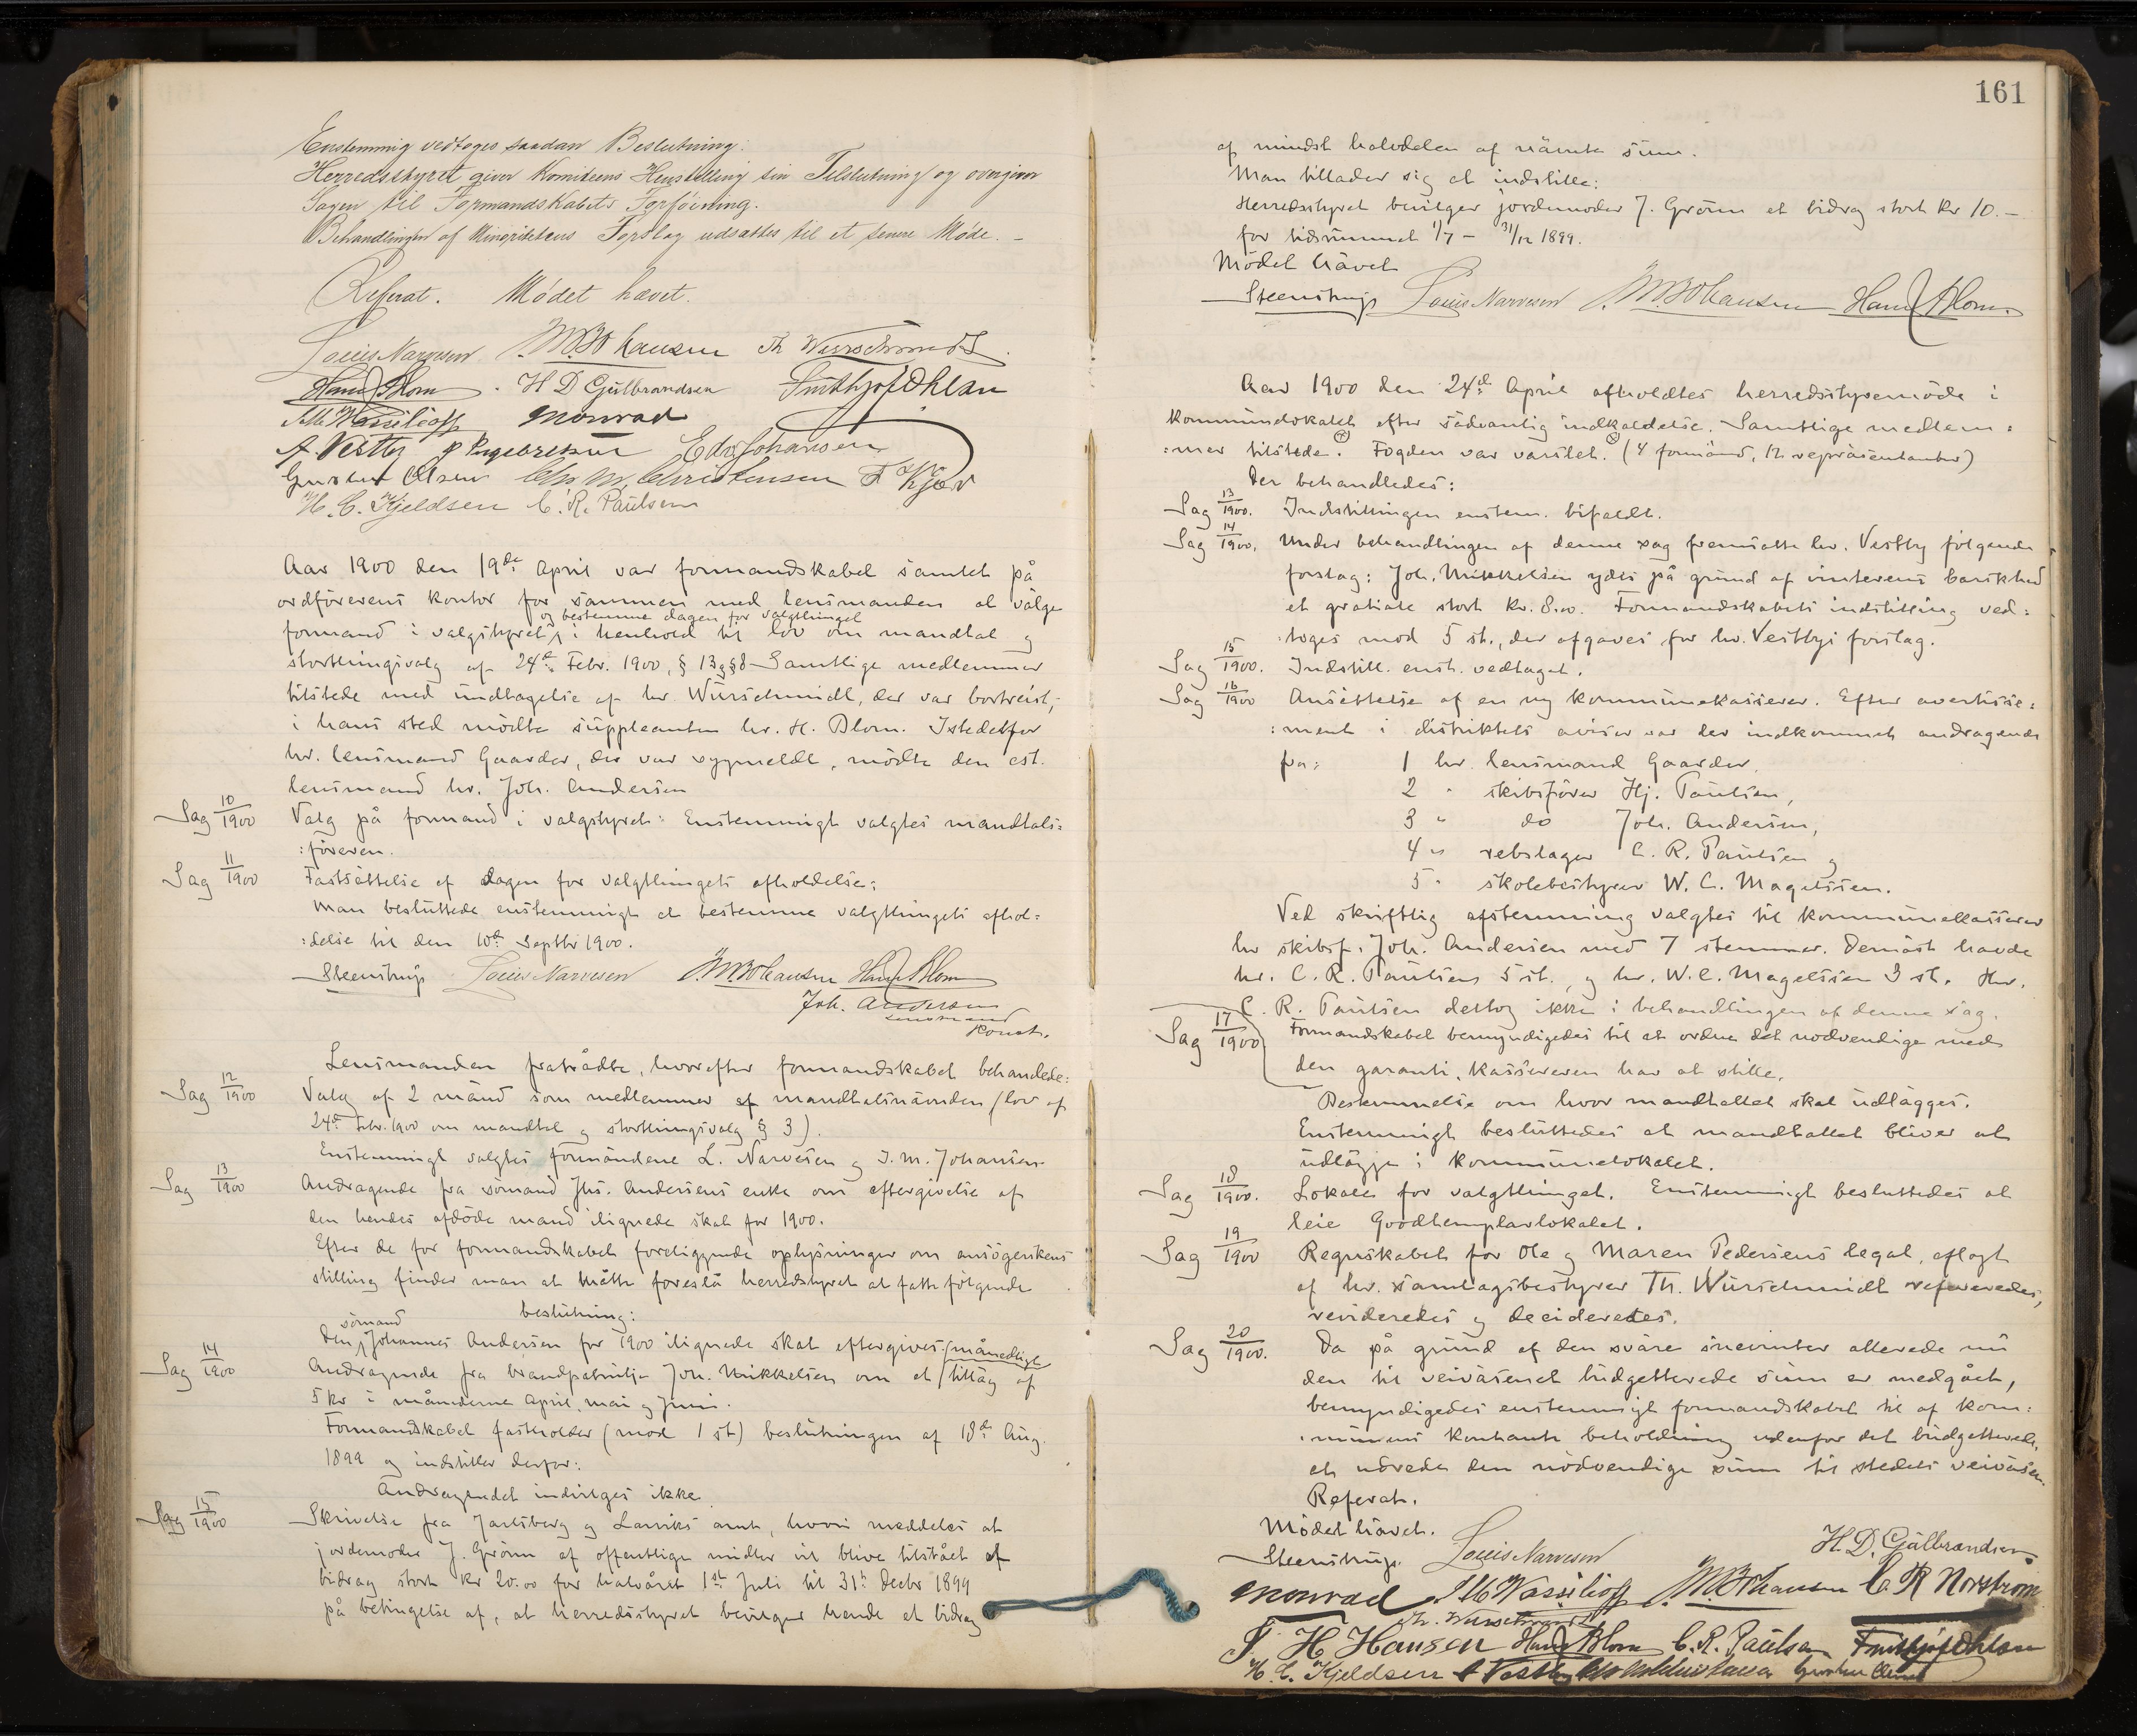 Enstemmig vedtoges saadan Beslutning:
Herredsstyret giver Komiteens Henstilling sin Tilslutning og overgiver
Sagen til Formandskabets Forføining.
Behandlingen af Minoritetens Forslag udsættes til et senere Møde. –
Referat. Mødet hævet.
Louis Narvesen J. M. Johansen Th Würschmidt
Hans Blom H D Gulbrandsen Fritthjof Ohlsen
S M Wassilioff Monrad
A. Vestby P Engebretsen Edv. Johansen
Gustav Olsen Chr M. Christensen F Kjær
H. C. Kjeldsen C. R. Paulsen
Aar 1900 den 19de April var formandskabet samlet på
ordførerens kontor for sammen med lensmanden at vælge
og bestemme dagen for valgthinget
formand i valgstyret i henhold til lov om mandtal og
storthingsvalg af 24de Febr. 1900, § 13 g § 8 Samtlige medlemmer
tilstede med undtagelse af hr. Würschmidt, der var bortreist,
i hans sted mødte suppleanten hr. H. Blom. Istedetfor
hr. lensmand Gaarder, der var sygmeldt, mødte den cst.
lensmand hr. Joh. Andersen
Sag 10/1900 Valg på formand i valgstyret: Enstemmigt valgtes mandtals=
:føreren.
Sag 11/1900 Fastsættelse af dagen for valgthingets afholdelse:
Man besluttede enstemmigt at bestemme valgthingets afhol=
:delse til den 10de Septbr 1900.
Steenstrup Louis Narvesen J. M. Johansen Hans Blom
Joh. Andersen
Lensmand
Konst.
Lensmanden fratrådte, hvorefter formandskabet behandlede:
Sag 12/1900 Valg af 2 mænd som medlemmer af mandtalsnævnden (lov af
24de Febr. 1900 om mandtal og storthingsvalg § 3).
Enstemmigt valgtes formændene L. Narvesen og J. M. Johansen
Sag 13/1900 Andragende fra sømand Jhs. Andersens enke om eftergivelse af
den hendes afdøde mand ilignede skat for 1900.
Efter de for formandskabet foreliggende oplysninger om ansøgerskens
stilling finder man at måtte foreslå herredsstyret at fatte følgende
beslutning:
sømand
Den Johannes Andersen for 1900 ilignede skat eftergives.
månedligt
Sag 14/1900 Andragende fra brandpatrulje Joh. Mikkelsen om et tillæg af
5 kr i månederne April, mai og Juni.
Formandskabet fastholder (mod 1 st) beslutningen af 18de Aug.
1899 og indstiller derfor:
Andragendet indvilges ikke
Sag 15/1900 Skrivelse fra Jarlsberg og Larviks amt, hvori meddeles at
jordemoder J. Grönn af offentlige midler vil blive tilstået et
bidrag stort kr 20.00 for halvåret 1st Juli til 31te Decbr 1899
på betingelse af, at herredsstyret bevilger hende et bidrag
161
af mindst halvdelen af nævnte sum.
Man tillader sig at indstille:
Herredsstyret bevilger jordemoder J. Grönn et bidrag stort kr 10.–
for tidsrummet 1/7 – 31/12 1899.
Mødet hævet
Steenstrup Louis Narvesen J. M. Johansen Hans Blom.
Aar 1900 den 24de April afholdtes herredsstyremøde i
kommunelokalet efter sædvanlig indkaldelse. Samtlige medlem=
:mer tilstede. Fogden var varslet. (4 formænd, 12 repræsentanter)
Der behandledes:
Sag 13/1900. Indstillingen enstem. bifaldt.
Sag 14/1900. Under behandlingen af denne sag fremsatte hr. Vestby følgende
forslag: Joh. Mikkelsen ydes på grund af vinterens barskhed
et gratiale stort kr. 8.00. Formandskabets indstilling ved=
:toges mod 5 st., der afgaves for hr. Vestbys forslag.
Sag 15/1900. Indstill. enst. vedtaget.
Sag 16/1900 Ansættelse af en ny kommunekasserer. Efter avertisse=
:ment i distriktets aviser var der indkommet andragende
fra: 1 hr. lensmand Gaarder,
2 " skibsfører Hj. Paulsen,
3 " do Joh. Andersen,
4 " rebslager C. R. Paulsen og
5 " skolebestyrer W. C. Magelssen.
Ved skriftlig afstemning valgtes til kommunekasserer
hr skibsf. Joh. Andersen med 7 stemmer. Dernæst havde
hr. C. R. Paulsen 5 st., og hr. W. C. Magelssen 3 st. Hr.
C. R. Paulsen deltog ikke i behandlingen af denne sag.
Formandskabet bemyndigedes til at ordne det nødvendige med
den garanti, kassereren har at stille.
Sag 17/1900 Bestemmelse om hvor mandtallet skal udlægges.
Enstemmigt besluttedes at mandtallet bliver at
udlægge i kommunelokalet.
Sag 18/1900. Lokale for valgthinget. Enstemmigt besluttedes at
leie Goodtemplarlokalet.
Sag 19/1900 Regnskabet for Ole og Maren Pedersens legat, aflagt
af hr. samlagsbestyrer Th. Würschmidt refereredes,
revideredes og decideredes.
Sag 20/1900. Da på grund af den svære snevinter allerede nu
den til veivæsenet budgetterede sum er medgået,
bemyndigedes enstemmigt formandskabet til af kom=
:munens kontante beholdning udenfor det budgetterede,
at udrede den nødvendige sum til stedets veivæsen.
Referat.
Mødet hævet.
Steenstrup. Louis Narvesen H. D. Gulbrandsen
Monrad S M Wassilioff J. M. Johansen C. R Norstrøm
Th. Würschmidt
T. H Hansen Hans Blom C. R. Paulsen Fritthjof Ohlsen
H. C. Kjeldsen A Vestby Chr M Christensen Gustav Olsen